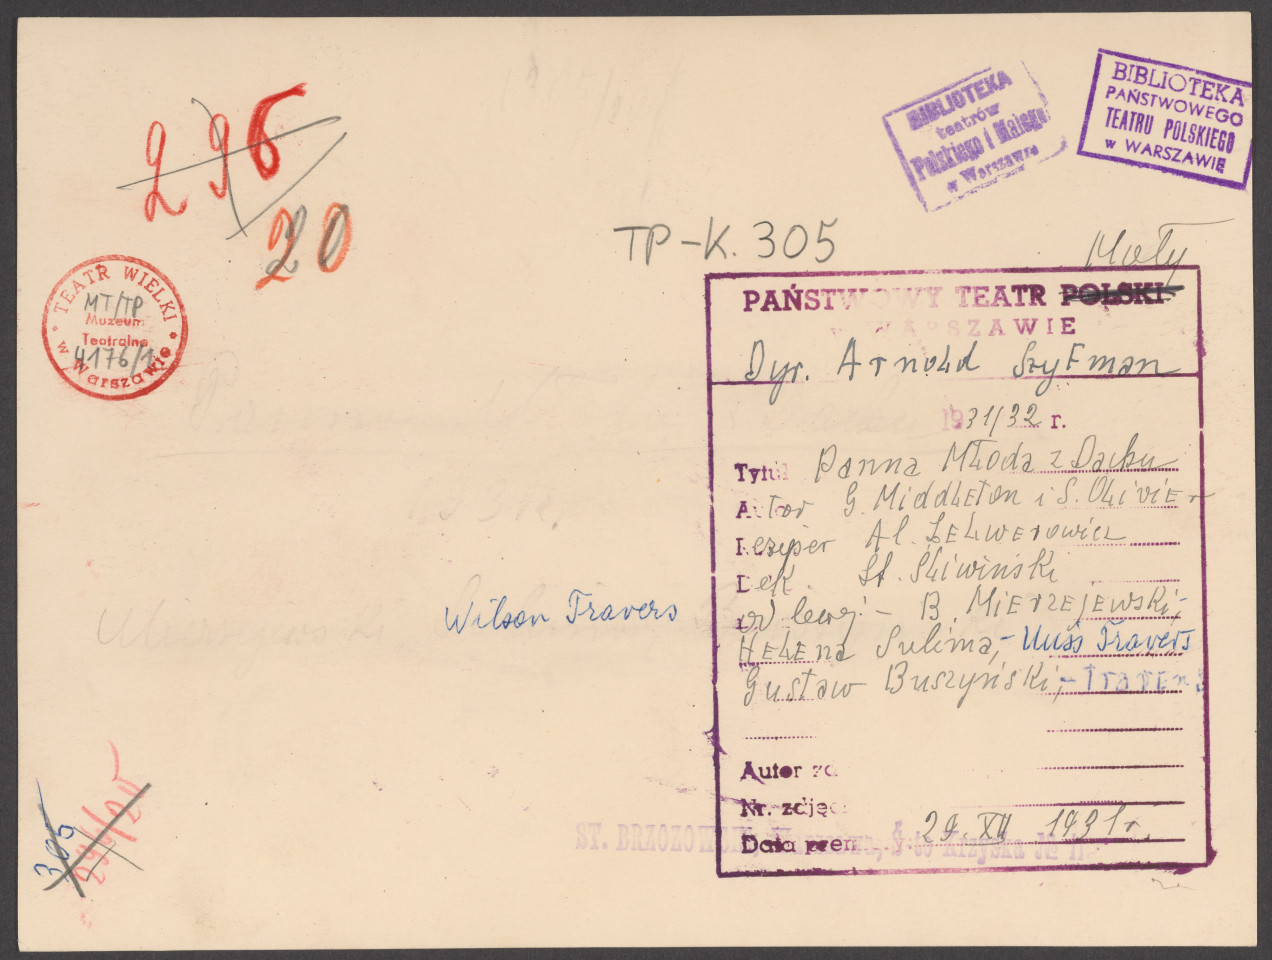 296
20
BIBLIOTEKA
teatrów
Polskiego i Małego
w Warszawie
BIBLIOTEKA
PAŃSTWOWEGO
TEATRU POLSKIEGO
w WARSZAWIE
TP-K. 305
TEATR WIELKI
MT/TP
Muzeum
Teatralne
4176/1
w Warszawie
Mały
PAŃSTWOWY TEATR POLSKI
w WARSZAWIE
Dyr. Arnold Szyfman
1931/32 r.
Tytuł Panna Młoda z Dachu
Autor G. Middleton i S. Olivier
Reżyser Al. Zelwerowicz
Dek. St. Śliwiński
od lewej - B. Mierzejewski,-
Wilson Travers
Helena Sulima,- Miss Travers
Gustaw Buszyński,- Travers
Autor zd
Nr. zdjęc
Data prem 29. XII 1931 r.
ST. BRZOZOWSKI, Warszawa, Ś-to Krzyska №
305
296/20